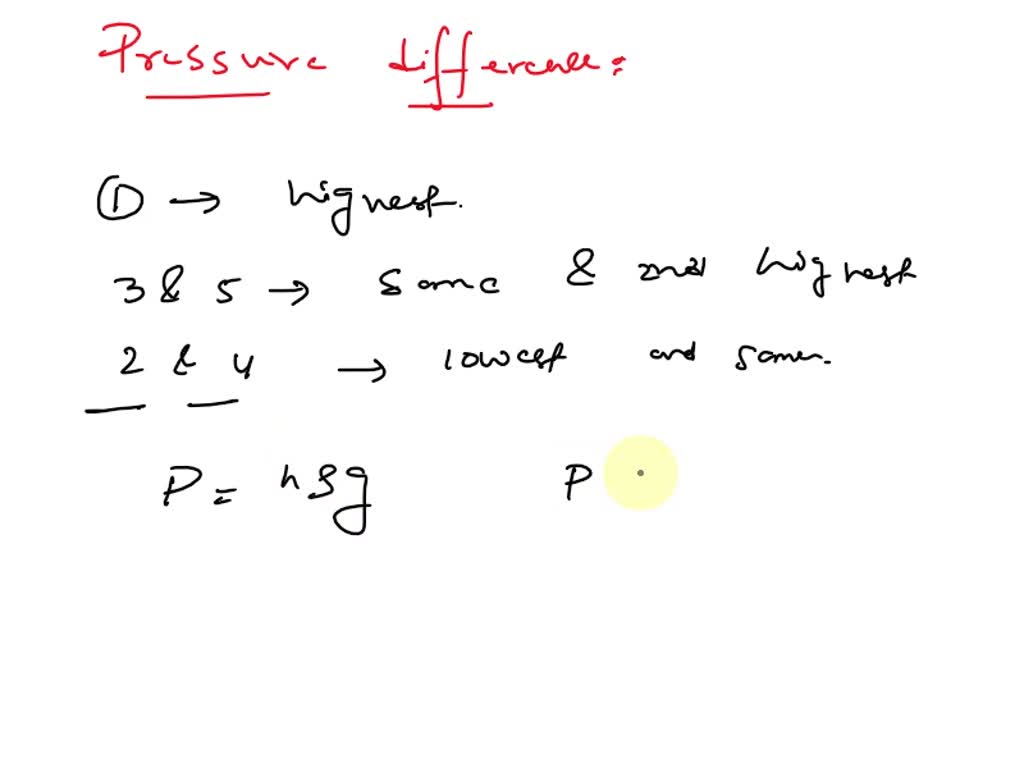 Pressure difference:
① → highest.
3 & 5 → same & 2nd highest
2 & 4 → lowest and same.
P = hρg P